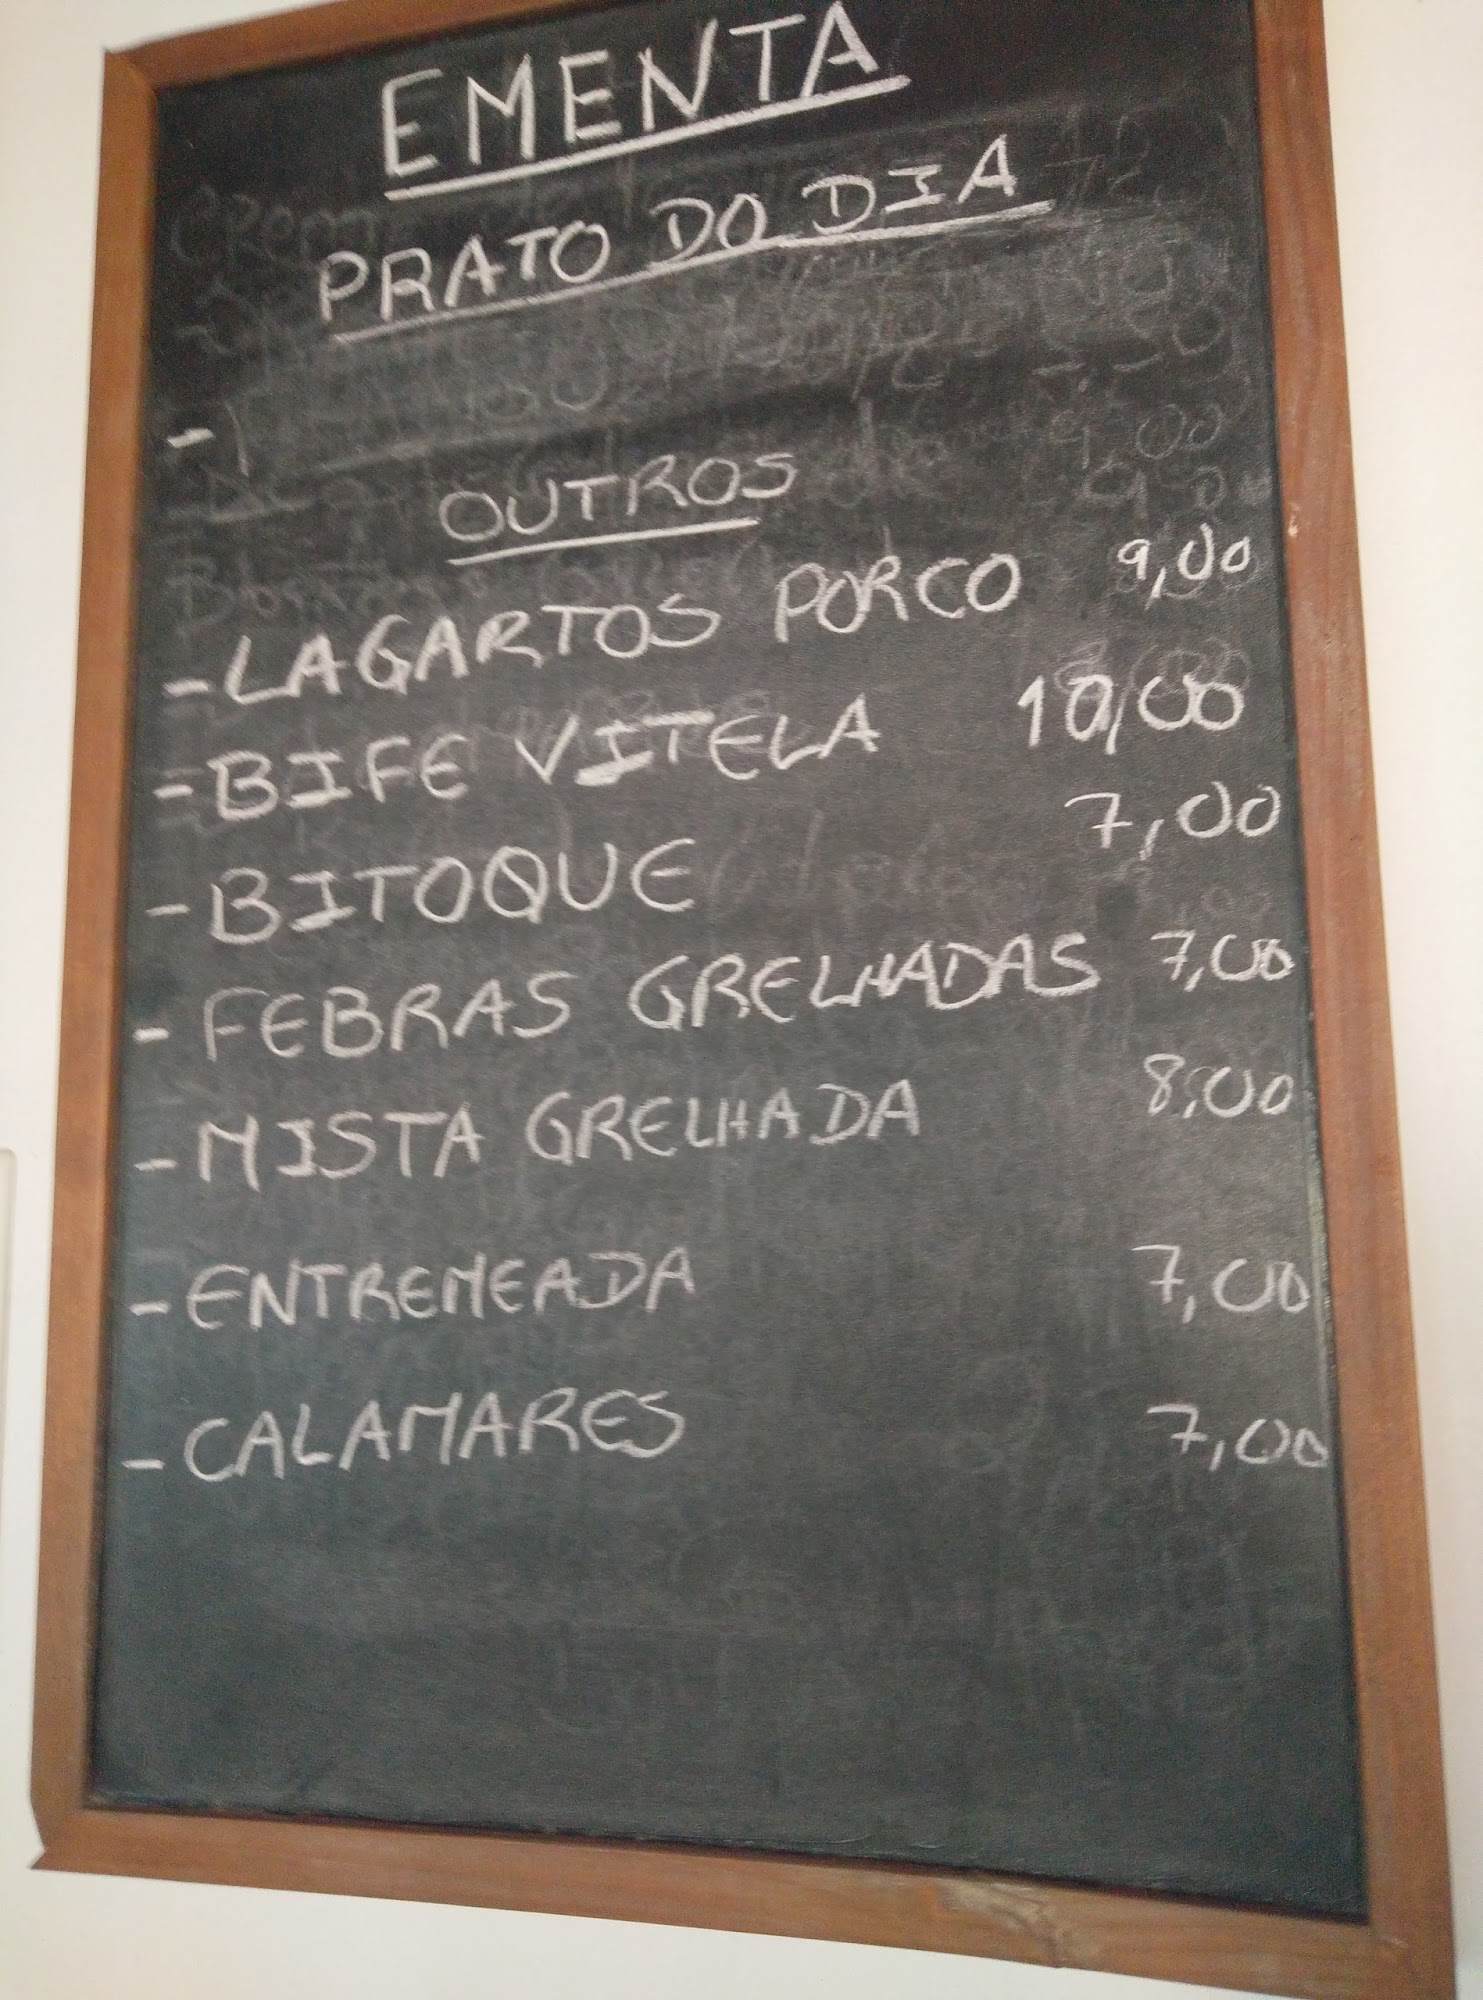 EMENTA
PRATO DO DIA
-
OUTROS
- LAGARTOS PORCO 9,00
- BIFE VITELA 10,00
- BITOQUE 7,00
- FEBRAS GRELHADAS 7,00
- MISTA GRELHADA 8,00
- ENTREMEADA 7,00
- CALAMARES 7,00